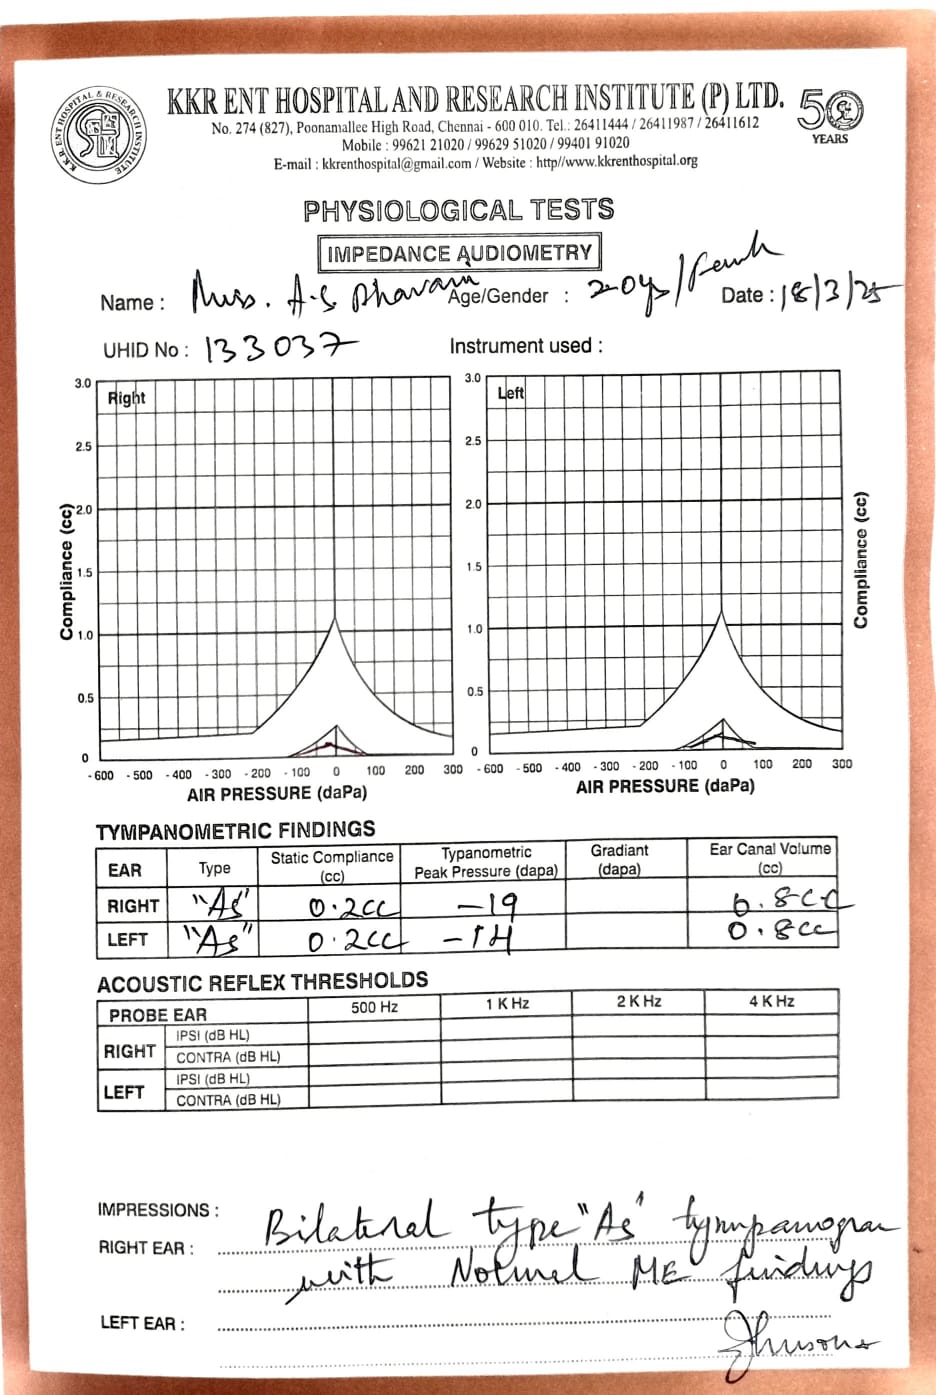 K.K.R. ENT HOSPITAL & RESEARCH INSTITUTE
KKR ENT HOSPITAL AND RESEARCH INSTITUTE (P) LTD.
50 YEARS
No. 274 (827), Poonamallee High Road, Chennai - 600 010. Tel.: 26411444 / 26411987 / 26411612
Mobile : 99621 21020 / 99629 51020 / 99401 91020
E-mail : kkrenthospital@gmail.com / Website : http//www.kkrenthospital.org
PHYSIOLOGICAL TESTS
IMPEDANCE AUDIOMETRY
Name : Miss. A.S Dharani Age/Gender : 20ys/Female Date : 18/3/25
UHID No : 133037 Instrument used :
Right
3.0
2.5
2.0
1.5
1.0
0.5
0
Compliance (cc)
- 600 - 500 - 400 - 300 - 200 - 100 0 100 200 300
AIR PRESSURE (daPa)
Left
3.0
2.5
2.0
1.5
1.0
0.5
0
Compliance (cc)
- 600 - 500 - 400 - 300 - 200 - 100 0 100 200 300
AIR PRESSURE (daPa)
TYMPANOMETRIC FINDINGS
EAR Type Static Compliance (cc) Typanometric Peak Pressure (dapa) Gradiant (dapa) Ear Canal Volume (cc)
RIGHT "As" 0.2cc -19 0.8cc
LEFT "As" 0.2cc -14 0.8cc
ACOUSTIC REFLEX THRESHOLDS
PROBE EAR 500 Hz 1 K Hz 2 K Hz 4 K Hz
RIGHT IPSI (dB HL)
CONTRA (dB HL)
LEFT IPSI (dB HL)
CONTRA (dB HL)
IMPRESSIONS :
RIGHT EAR : Bilateral type "As" tympanogram
with Normal ME findings
LEFT EAR :